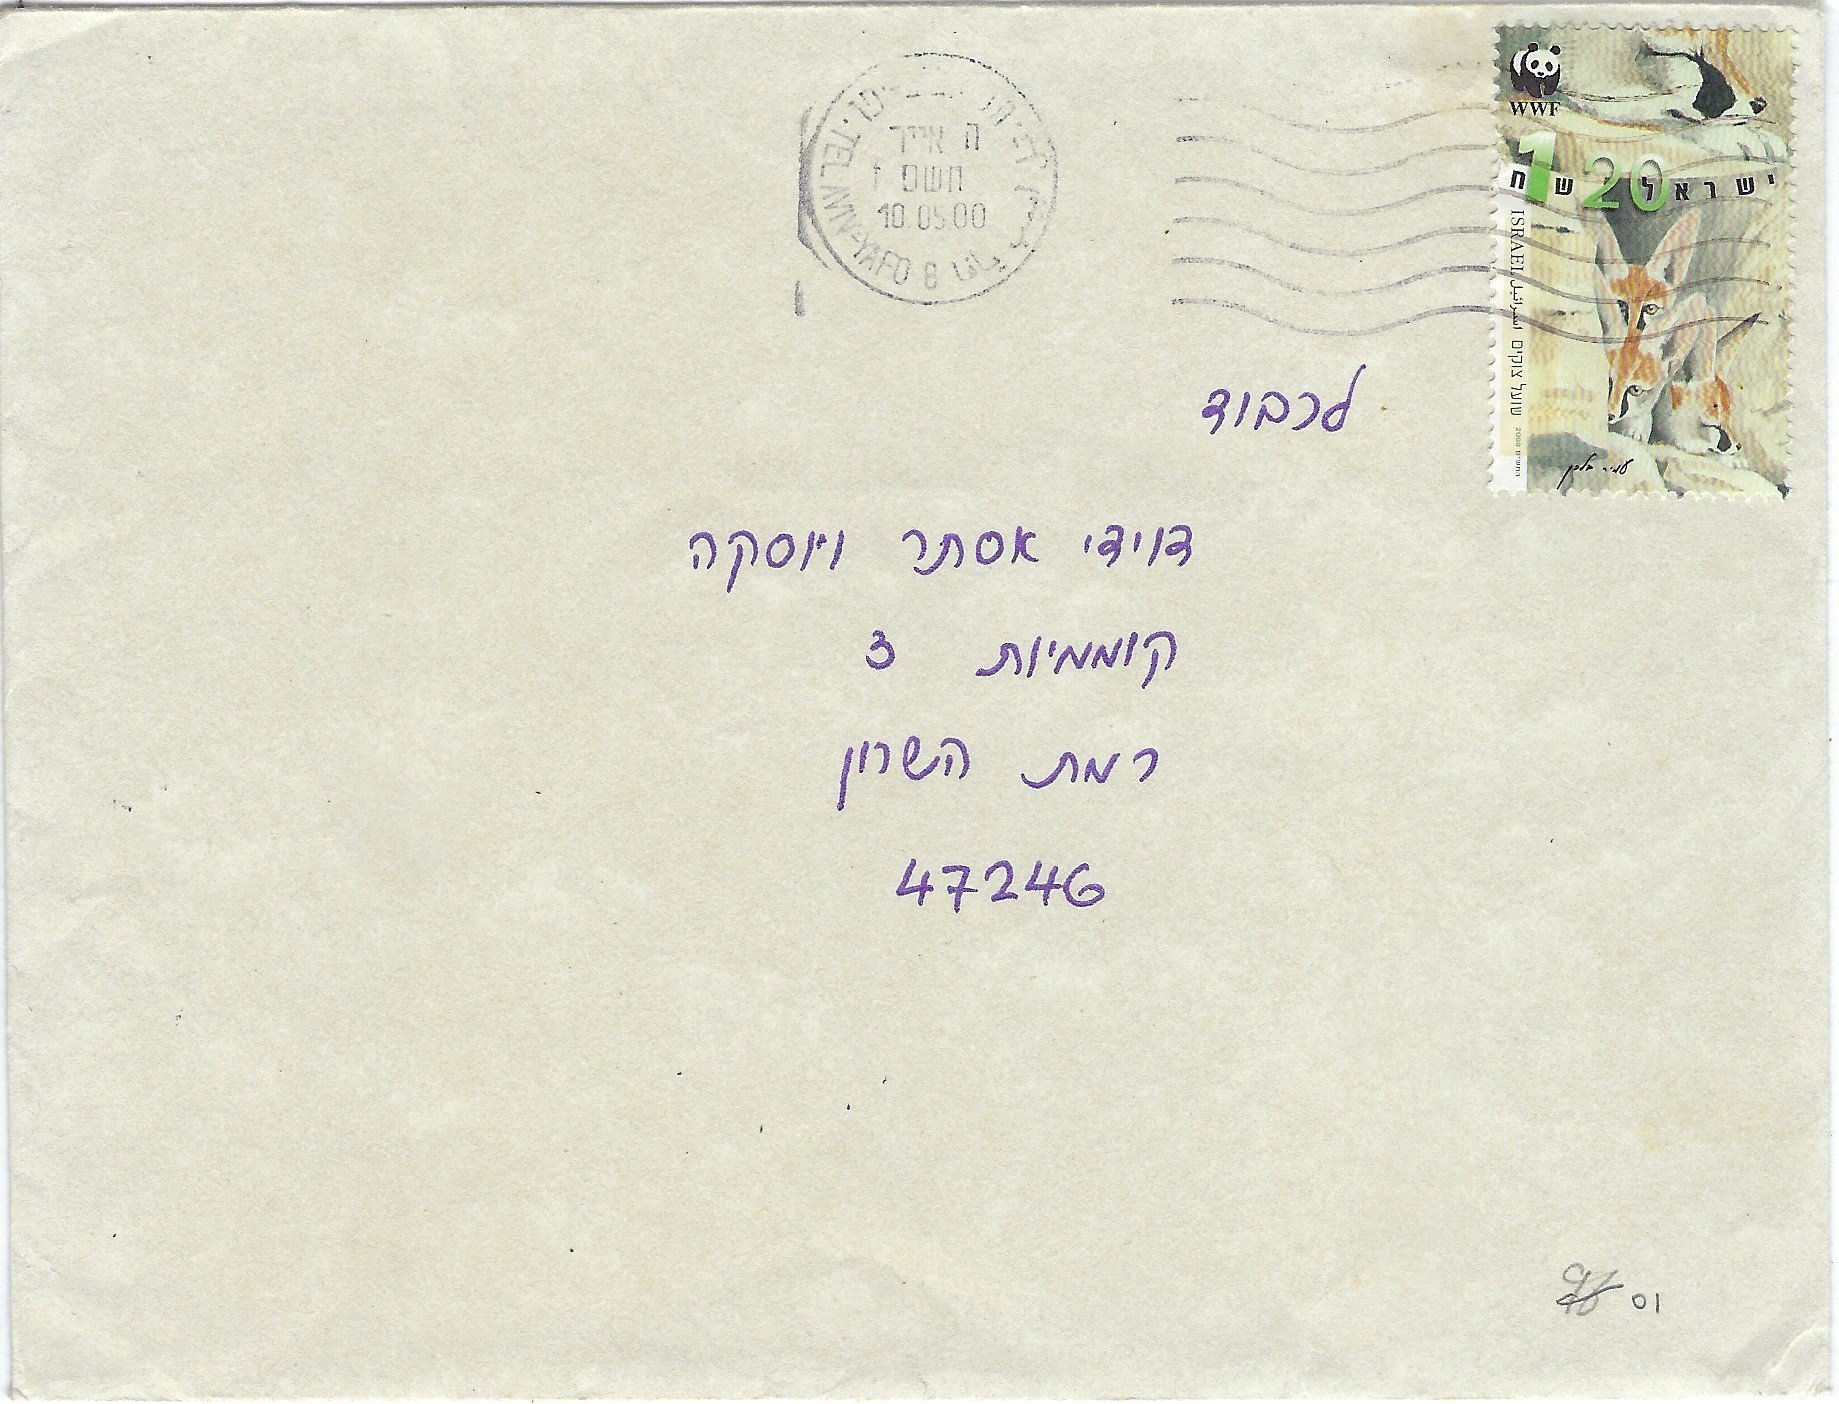 WWF
1.20
ישראל ש"ח
ISRAEL اسرائيل שועל צוקים 2000
TEL AVIV-YAFO 8 يافا
ה אייר
תשס
10.05.00
לכבוד
דוידי אסתר ויוסקה
קוממיות 3
רמת השרון
47246
01